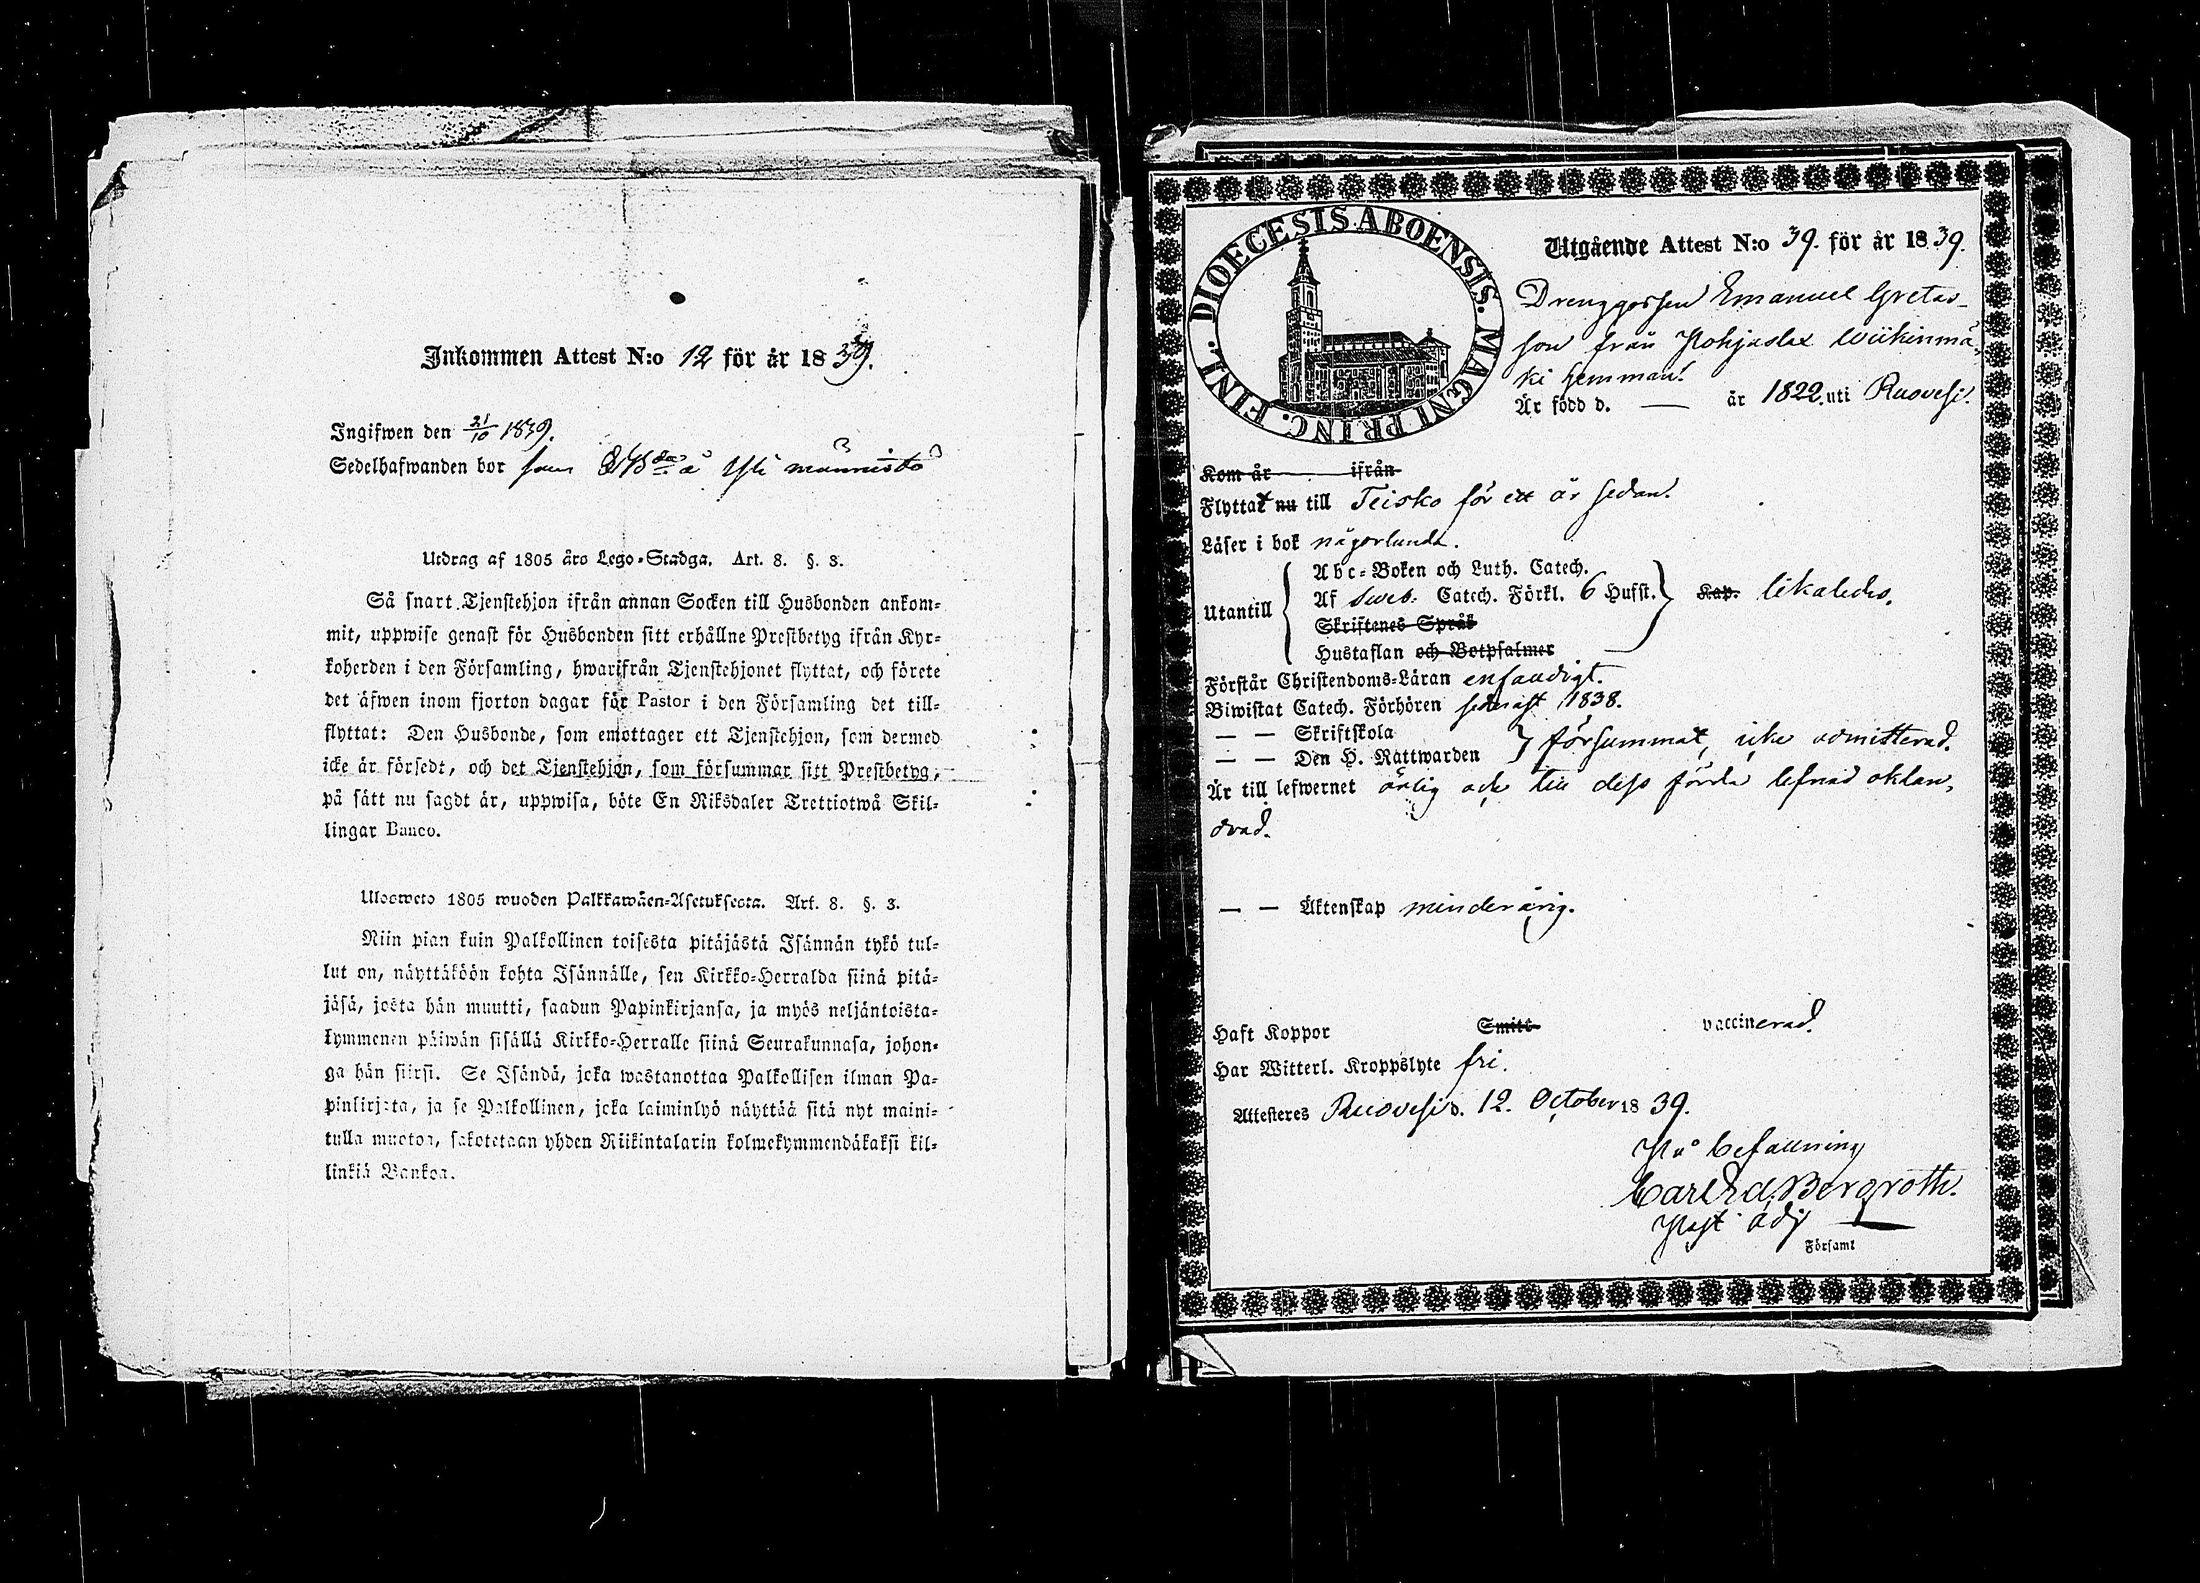 Inkommen Attest N:o 12 för år 1839.
Ingifwen den 21/10 1839.
Sedelhafwanden bor som å Yli männistö
Utdrag af 1805 års Lego-Stadga. Art. 8. §. 3.
Så snart Tjenstehjon ifrån annan Socken till Husbonden ankom-
mit, uppwise genast för Husbonden sitt erhållne Prestbetyg ifrån Kyr-
koherden i den Församling, hwarifrån Tjenstehjonet flyttat, och förete
det äfwen inom fjorton dagar för Pastor i den Församling det till-
flyttat: Den Husbonde, som emottager ett Tjenstehjon, som dermed
icke är försedt, och det Tjenstehjon, som försummar sitt Prestbetyg,
på sätt nu sagdt är, uppwisa, böte En Riksdaler Trettiotwå Skil-
lingar Banco.
Ulosweto 1805 wuoden Palkkawäen-Asetuksesta. Art. 8. §. 3.
Niin pian kuin Palkollinen toisesta pitäjästä Isännän tykö tul-
lut on, näyttäköön kohta Isännälle, sen Kirkko-Herralda siinä pitä-
jäsä, josta hän muutti, saadun Papinkirjansa, ja myös neljäntoista-
kymmenen päiwän sisällä Kirkko-Herralle siinä Seurakunnasa, johon-
ga hän siirsi. Se Isändä, joka wastanottaa Palkollisen ilman Pa-
pinkirjata, ja se Palkollinen, joka laiminlyö näyttää sitä nyt maini-
tulla muotoa, sakotetaan yhden Riikintalarin kolmekymmendäkaksi kil-
linkiä Bankoa.
DIOECESIS ABOENSIS. MAGNI PRINC. FINL.
Utgående Attest N:o 39. för år 1839.
Drenggossen Emanuel Gretas-
son från Pohjaslax Wiikinmä-
ki hemman.
Är född d. — år 1822. uti Ruovesi.
Kom år ifrån
Flyttat nu till Teisko för ett år sedan.
Läser i bok någorlunda.
Utantill
Abc-Boken och Luth. Catech.
Af Sweb. Catech. Förkl. 6 Hufst. Kap. likaledes.
Skriftenes Språk
Hustaflan och Botpsalmer
Förstår Christendoms-Läran enfaldigt.
Biwistat Catech. Förhören senast 1838.
— — Skriftskola
— — Den H. Nattwarden } försummat, icke admitterad.
Är till lefwernet ärlig och till dess förda lefnad oklan-
drad.
— — Äktenskap minderårig.
Haft Koppor Smitt vaccinerad.
Har Witterl. Kroppslyte fri.
Attesteres Ruovesi d. 12. October 1839.
På befallning
Carl Ed. Bergroth.
Past. adj
Församl